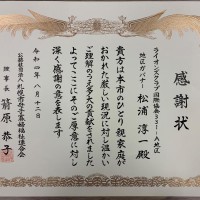 感謝状
ライオンズクラブ国際協会331-A地区
地区ガバナー
松浦淳一殿
貴方は本市のひとり親家庭が
おかれた厳しい現況に対し温かい
ご理解のうえ多大の貢献をされました
よってここにそのご厚意に対し
深く感謝の意を表します
令和四年八月十二日
公益社団法人札幌市母子寡婦福祉連合会
理事長 箭原恭子